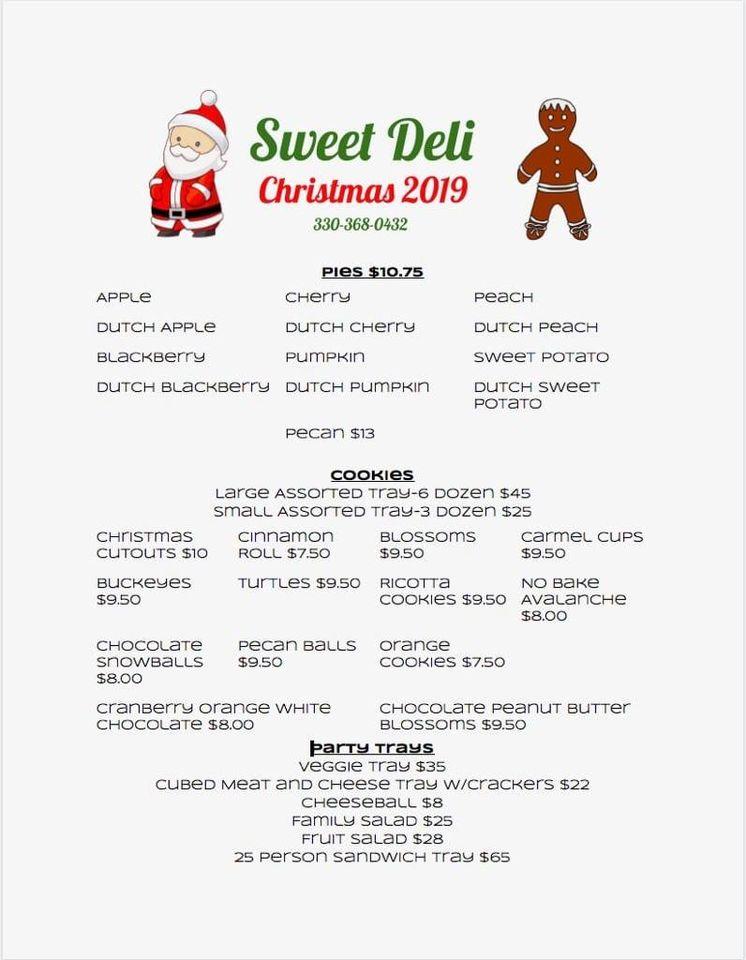 Sweet Deli
Christmas 2019
330-368-0432
Pies $10.75
Apple Cherry Peach
Dutch Apple Dutch Cherry Dutch Peach
Blackberry Pumpkin Sweet Potato
Dutch Blackberry Dutch Pumpkin Dutch Sweet
Potato
Pecan $13
Cookies
Large Assorted Tray-6 Dozen $45
Small Assorted Tray-3 Dozen $25
Christmas Cinnamon Blossoms Carmel Cups
Cutouts $10 Roll $7.50 $9.50 $9.50
Buckeyes Turtles $9.50 Ricotta No Bake
$9.50 Cookies $9.50 Avalanche
$8.00
Chocolate Pecan Balls Orange
Snowballs $9.50 Cookies $7.50
$8.00
Cranberry Orange White Chocolate Peanut Butter
Chocolate $8.00 Blossoms $9.50
Party Trays
Veggie Tray $35
Cubed Meat and Cheese Tray w/crackers $22
Cheeseball $8
Family Salad $25
Fruit Salad $28
25 Person Sandwich Tray $65